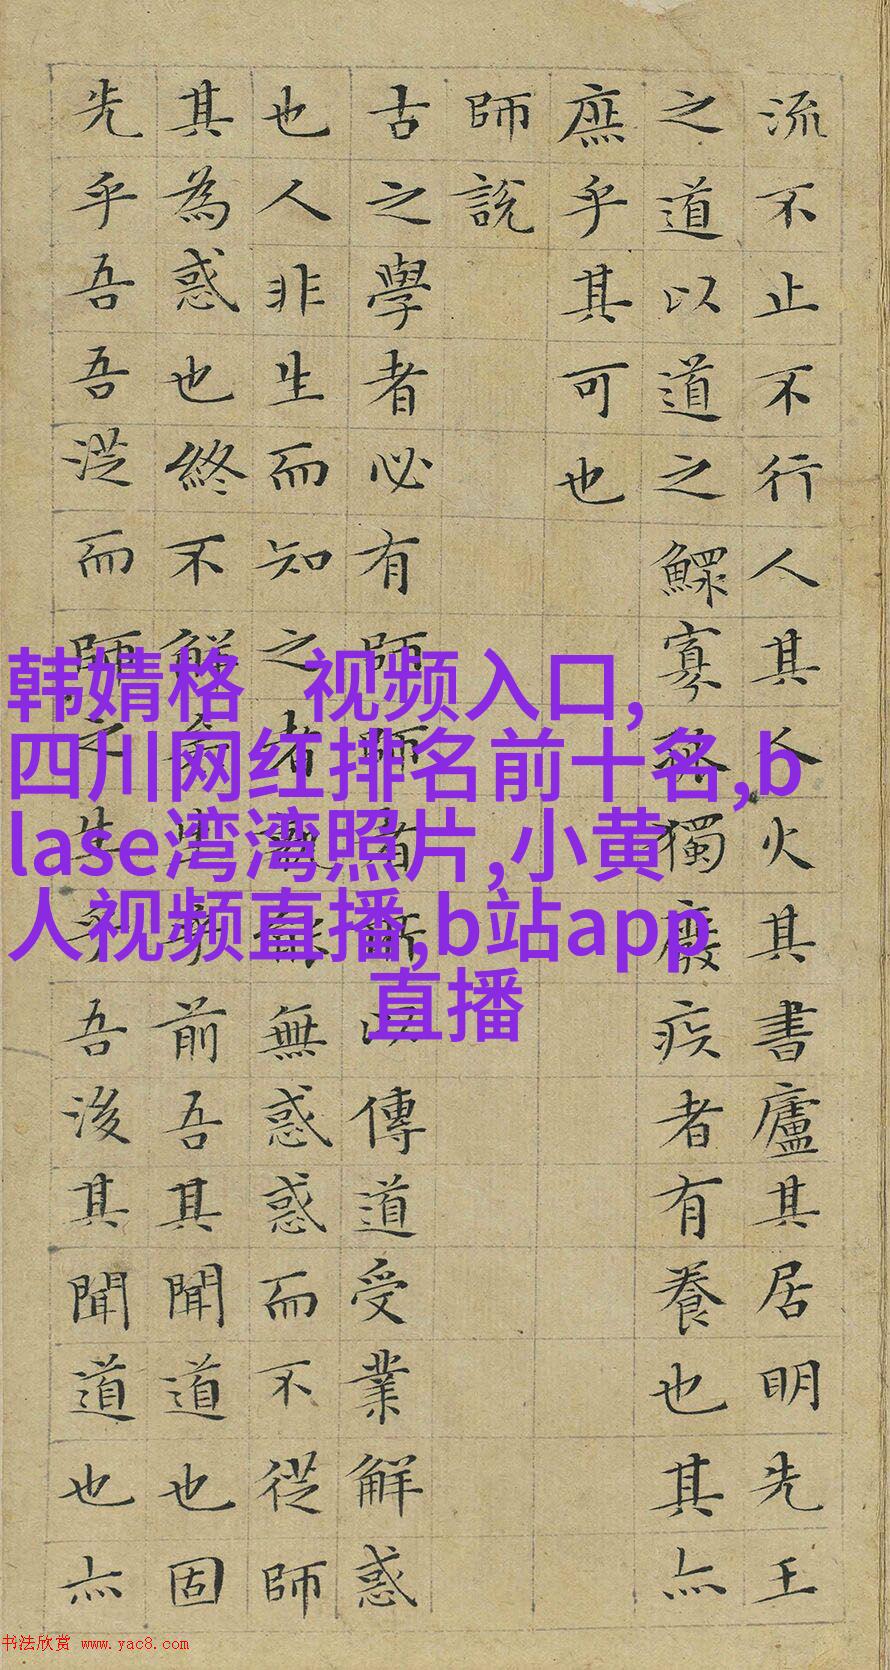 流不止不行人其人火其書廬其居明先王
之道以道之鰥寡孤獨廢疾者有養也其亦
庶乎其可也
師說
古之學者必有師師者所以傳道受業解惑
也人非生而知之者孰能無惑惑而不從師
其為惑也終不解矣生乎前吾其聞道也固
先乎吾吾從而師之生乎吾後其聞道也亦
韩婧格 视频入口,
四川网红排名前十名,b
lase湾湾照片,小黄
人视频直播,b站app
直播
书法欣赏 www.yac8.com